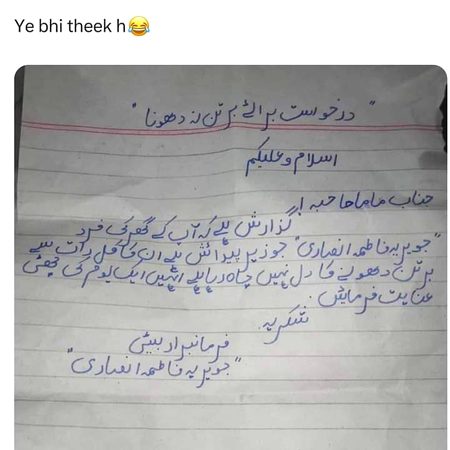 Ye bhi theek h😂
"درخواست برائے برتن نہ دھونا"
اسلام و علیکم
جناب ماما صاحبہ!
گزارش ہے کہ آپ کے گھر کی فرد
"جویریہ فاطمہ انصاری" جو زیر پیدائش ہے ان کا کل رات سے
برتن دھونے کا دل نہیں چاہ رہا ہے انہیں ایک یوم کی چھٹی
عنایت فرمایش
شکریہ
فرمانبرادر بیٹی
"جویریہ فاطمہ انصاری"